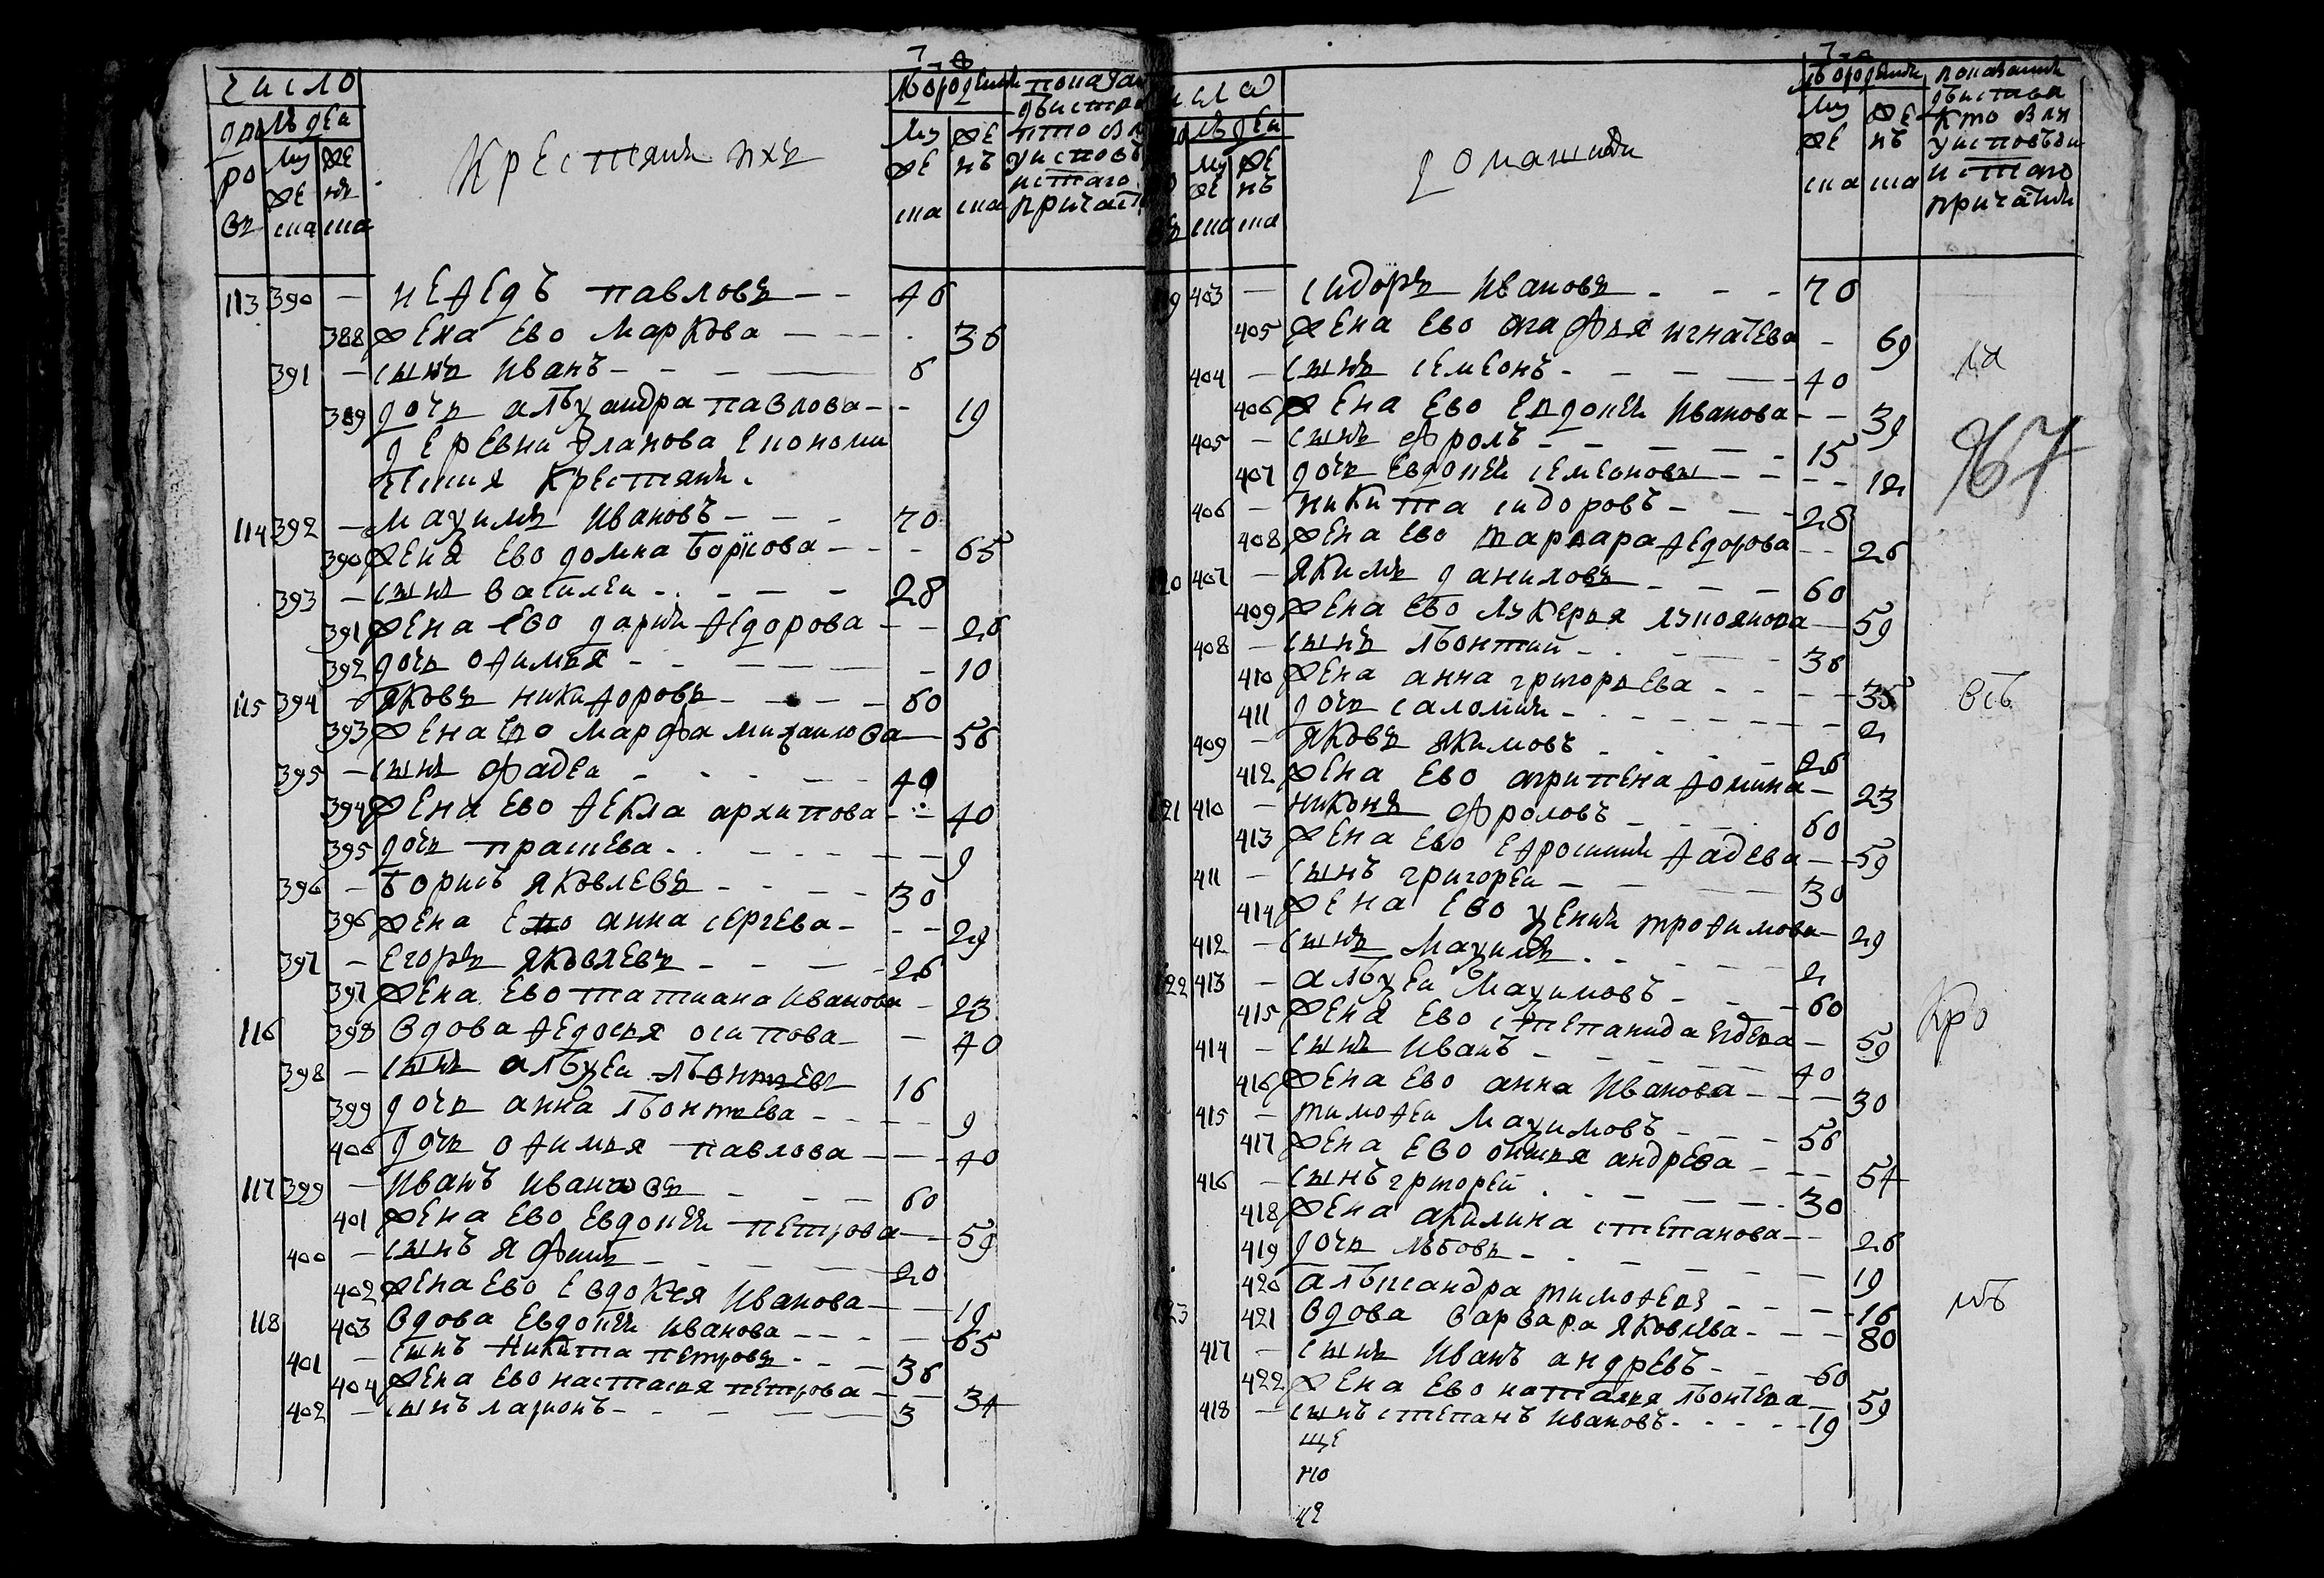 число
людеи
дво
ровъ
муже
ска
жен
ска
Крестяня ихъ
лѣтъ от рождения
муже
ска
жен
ска
показание
действа
кто былъ
у исповѣди
и стаго
причастия
113 390 — Нефедъ павловъ — — 40
388 жена ево Маркова — — 38
391 — сынъ Иванъ — — — 6
389 дочь алѣѯандра павлова — — 19
деревни уланова Економи
ческия Крестяня.
114 392 — маѯимъ Ивановъ — — — 70
390 жена ево домна борисова — — — 65
393 — сынъ василеи — — — 28
391 жена ево дария федорова — — 26
392 дочь офимья — — — 10
115 394 — яковъ никифоровъ — — — 60
393 жена ево марфа михаилова — 58
395 — сынъ фадеи — — — 40
394 жена ево фекла архипова — — 40
395 дочь прасковя — — — 9
396 — борисъ яковлевъ — — — 30
396 жена ево анна сергева — — — 29
397 — егоръ яковлевъ — — — 26
397 жена ево татиана Иванова — 23
116 398 вдова федосья осипова — — 40
398 — сынъ алѣѯеи лѣонтьевъ 16
399 дочь анна лѣонтьева — — — 9
400 дочь офимья павлова — — — 40
117 399 — Иванъ Ивановъ — — — 60
401 жена ево евдокия петрова — — 59
400 — сынъ яфимъ — — — 20
402 жена ево евдокея Иванова — — 19
118 403 вдова евдокия иванова — — — 65
401 — сынъ никита петровъ — — — 36
404 жена ево настасья петрова — — 34
402 — сынъ ларионъ — — — 3
число
людеи
муже
ска
жен
ска
домашния
лѣтъ от рождения
муже
ска
жен
ска
показание
действа
кто былъ
у исповѣди
и стаго
причастия
119 403 — сидоръ Ивановъ — — — 70
405 жена ево агафья игнатева — 69
404 — сынъ семеонъ — — — 40
406 жена ево евдокия Иванова — — 39
405 — сынъ фролъ — — — 15
407 дочь евдокия семеонова — — — 12
406 — никита сидоровъ — — — 28
408 жена ево варвара федорова — — 26
120 407 — якимъ даниловъ — — — 60
409 жена ево лукерья лукоянова — 59
408 — сынъ лѣонтий — — — 38
410 жена анна григорьева — — — 35
411 дочь саломия — — — 2
409 — яковъ якимовъ — — — 26
412 жена ево агрипена фомина — 23
121 410 — никонъ фроловъ — — — 60
413 жена ево ефросиния фадева — — 59
411 — сынъ григореи — — — 30
414 жена ево ѯения трофимова — 29
412 — сынъ маѯимъ — — — 2
122 413 — алѣѯеи маѯимовъ — — — 60
415 жена ево степанида — 59
414 — сынъ Иванъ — — — 40
416 жена ево анна Иванова — — — 30
415 — тимофеи маѯимовъ — — — 56
417 жена ево андрева — — — 54
416 — сынъ григореи — — — 30
418 жена акилина степанова — — 26
419 дочь любовь — — — 19
420 алѣксандра тимофева — — — 16
123 421 вдова варвара яковлева — — — 80
417 — сынъ Иванъ андревъ — — 60
422 жена ево наталья лѣонтева — 59
418 — сынъ степанъ Ивановъ — — — 19
967
всѣ
Кро
мѣ